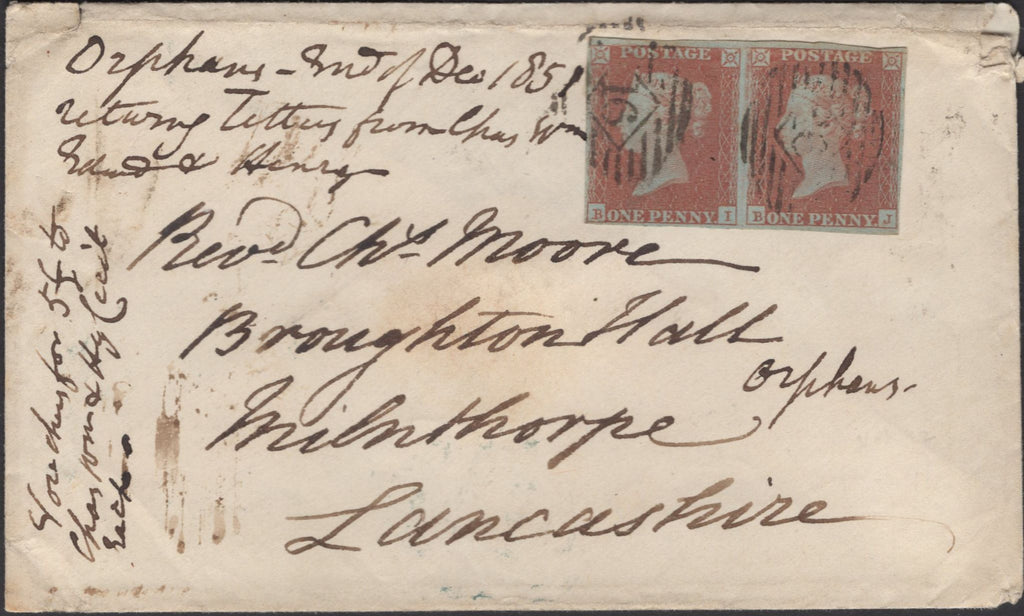 Orphans - End of Dec 1851
returng letters from Chas Wm
Edwd & Henry
POSTAGE
ONE PENNY
B I
POSTAGE
ONE PENNY
B J
Revd. Chs. Moore
Broughton Hall
Milnthorpe
Lancashire
Orphans.
Vouchers for 5£ to
Chas Wm & Hy Cecil
Each